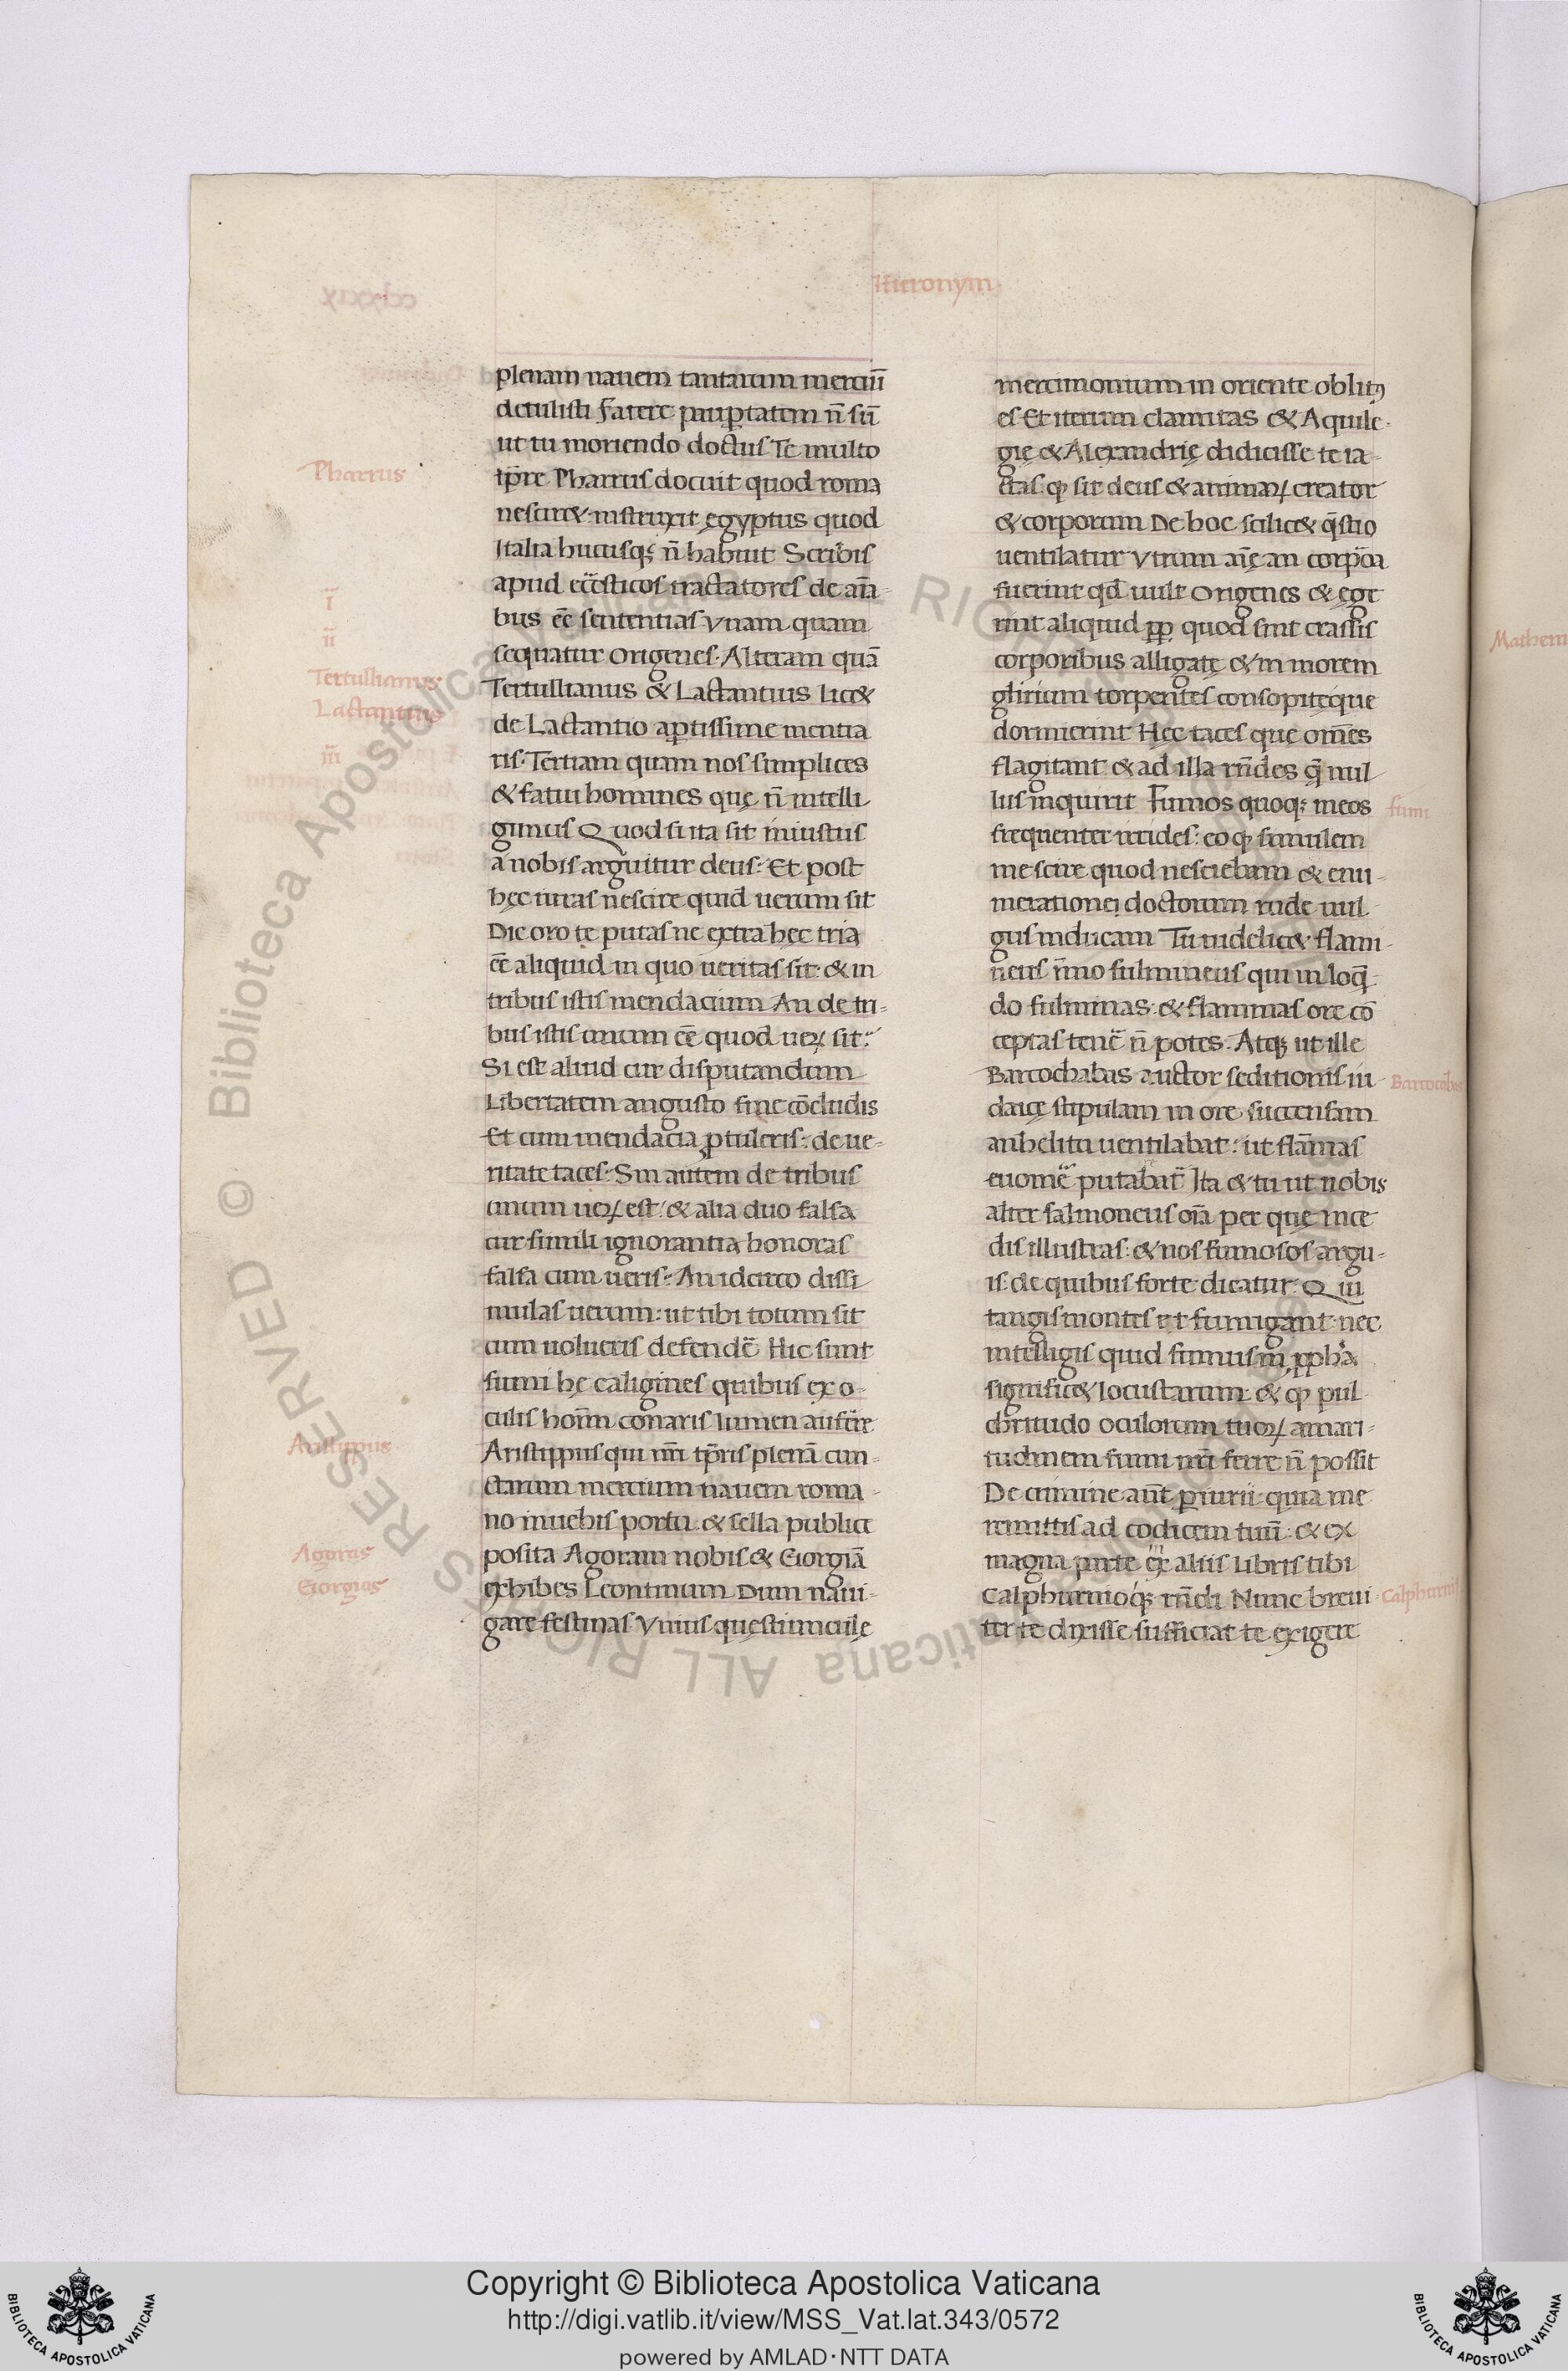 Hieronym
plenam nauem tantarum merciū
detulisti Fatere paup̱tatem n̄ sū
ut tu moriendo doctus Te multo
tp̄re Pharrus docuit quod roma
nescir&. instruxit ęgyptus quod
Italia hucusq; n̄ habuit Scribis
apud ecc̄sticos tractatores de aīa-
bus eē sententias Vnam quam
sequatur Origenes. Alteram quā
Tertullianus & Lactantius lic&
de Lactantio ap̱tissime mentia
ris. Tertiam quam nos simplices
& fatui homines quę n̄ intelli
gimus Quod si ita sit iniustus
a nobis arguitur deus. Et post
hęc iuras nescire quid uerum sit
Dic oro te putas ne extra hęc tria
eē aliquid in quo ueritas sit: & in
tribus istis mendacium An de tri-
bus istis unum eē quod ueꝝ sit.
Si est aliud cur disputandum
Libertatem angusto fine cōcludis
Et cum mendacia ꝓtuleris: de ue-
ritate taces. Sin autem de tribus
unum ueꝝ est: & alia duo falsa
cur simili ignorantia honoras
falsa cum ueris: An idcirco dissi
mulas uerum: ut tibi totum sit
cum uolueris defendē Hic sunt
fumi hę caligines quibus ex o-
culis hom̄ conaris lumen aufer̄re
Aristippus qui nr̄i tp̄ris plenā cun-
ctarum mercium nauem roma-
no inuehis portu. & sella publice
posita Agoram nobis & Giorgiā
exhibes Leontinum Dum naui-
gare festinas Vnius questiunculę
mercimonium in oriente oblitꝰ
es Et iterum clamitas & Aquile-
gię & Alexandrię didicisse te ia-
ctas. ꝙ sit deus & animaꝝ creator
& corporum De hoc scilic& q̄stio
uentilatur Vtrum aīę an corpōa
fuerint qd̄ uult Origenes & ege
rint aliquid ꝓp quod sint crassis
corporibus alligatę & in morem
glirium torpentes consopitęque
dormierint Hęc taces que om̄es
flagitant & ad illa rn̄des q̄ nul
lus inquirit Fumos quoq; meos
frequenter irrides: eo ꝙ simulem
me scire quod nesciebam & enu-
merationei doctorum rude uul
gus inducam Tu uidelic& flam-
meus im̄o fulmineus qui in loq̄-
do fulminas: & flammas ore cō
ceptas tenē n̄ potes. Atq; ut ille
Barcochabas auctor seditionis iu-
daicę stipulam in ore succensam
anhelitu uentilabat: ut flāmas
euomē putabat̄ Ita & tu ut nobis
alter salmoneus oīa per quę ince
dis illustras: & nos fumosos argu-
is. de quibus forte dicatur: Qui
tangis montes et fumigant. nec
intelligis quid fumus in ꝓph̄a
signific& locustarum: & ꝙ pul
chritudo oculorum tuoꝝ amari-
tudinem fumi nr̄i ferre n̄ possit
De crimine aūt periurii: quia me
remittis ad codicem tuū: & ex
magna parte ex aliis libris tibi
Calphurnioq; rn̄di Nunc breui-
ter te dixisse sufficiat te exigere
Pharrus
ī
īi
Tertullianus
Lactantius
iīi
Aristippus
Agoras
Giorgias
fumi
Barcochabas
Calphurniꝰ
Mathem
© Biblioteca Apostolica Vaticana ALL RIGHTS RESERVED
Copyright © Biblioteca Apostolica Vaticana
http://digi.vatlib.it/view/MSS_Vat.lat.343/0572
powered by AMLAD·NTT DATA
BIBLIOTECA APOSTOLICA VATICANA
BIBLIOTECA APOSTOLICA VATICANA